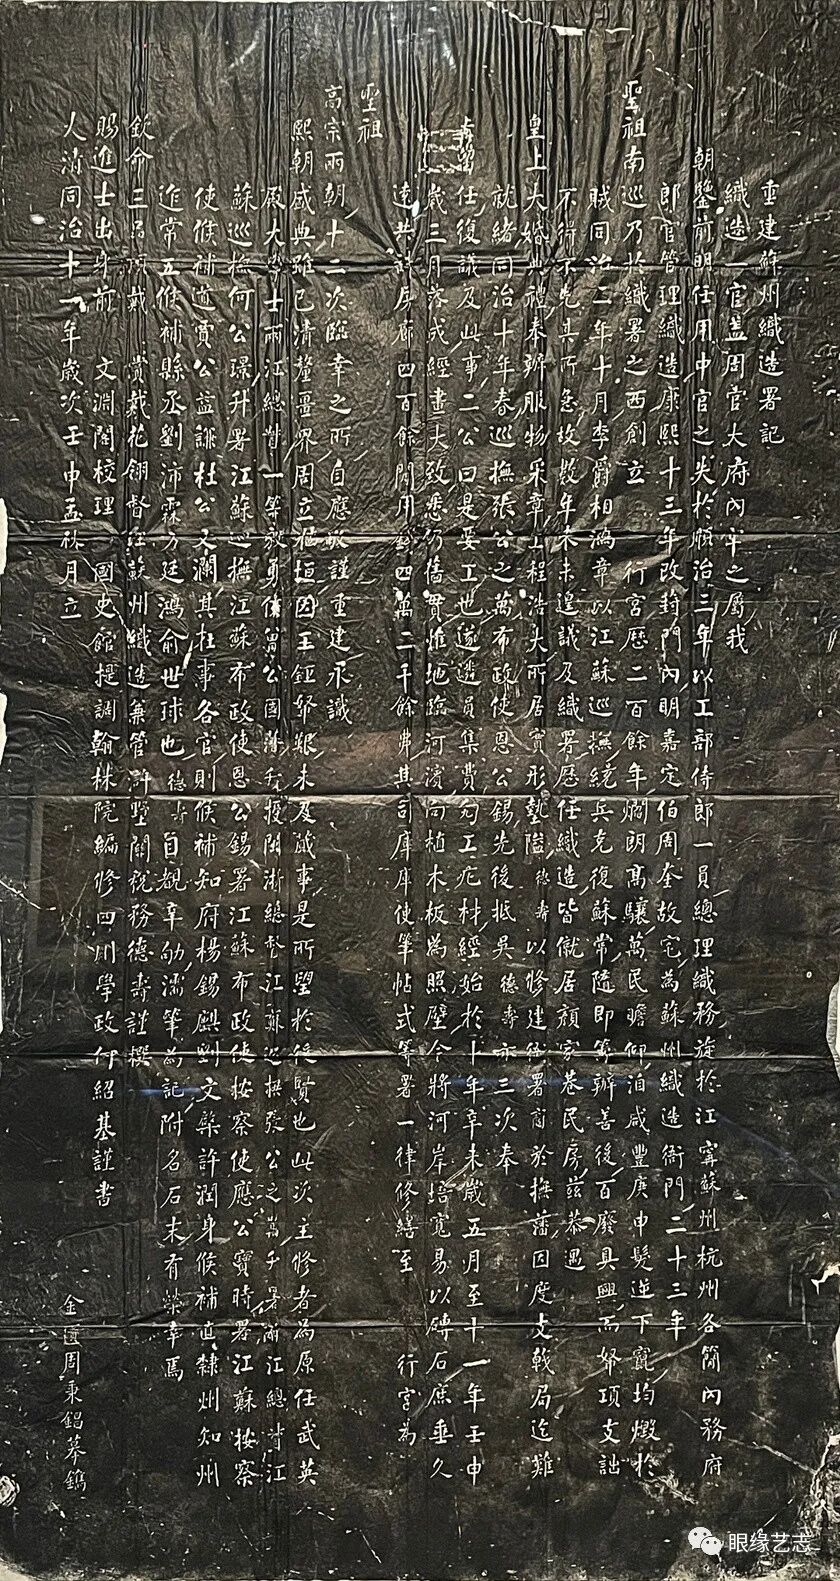 重建蘇州織造署記
織造一官蓋周官大府內宰之屬我
朝鑒前明任用中官之失於順治三年以工部侍郎一員總理織務旋於江寧蘇州杭州各簡內務府
郎官管理織造康熙十三年改葑門內明嘉定伯周奎故宅為蘇州織造衙門二十三年
聖祖南巡乃於織署之西創立 行宮歷二百餘年爛朗高驤萬民瞻仰洎咸豐庚申髮逆下竄均燬於
賊同治二年十月李爵相鴻章以江蘇巡撫統兵克復蘇常隨即籌辦善後百廢具興而帑項支詘
不得不先其所急故數年來未遑議及織署歷任織造皆僦居顏家巷民房茲恭遇
皇上大婚典禮奉辦服物采章工程浩大所居實形墊隘德壽以修建衙署商於撫藩因度支戟局迄難
就緒同治十年春巡撫張公之萬布政使恩公錫先後抵吳德壽亦三次奉
任復議及此事二公曰是要工也遂遴員集費勾工庀材經始於十年辛未歲五月至十一年壬申
歲三月落成經畫大致悉仍舊貫惟地臨河濱向植木板為照壁今將河岸培寬易以磚石庶垂久
遠共計房廊四百餘間用錢四萬二千餘弗其司庫庫使筆帖式等署一律修繕至 行宮為
聖祖
高宗兩朝十二次臨幸之所自應敬謹重建永識
熙朝盛典雖已清釐畺界周立樞垣因工鉅帑艱未及蕆事是所望於後賢也此次主修者為原任武英
殿大學士兩江總督一等毅勇侯曾公國藩授閩浙總督江蘇巡撫張公之萬升署兩江總督江
蘇巡撫何公璟升署江蘇巡撫江蘇布政使恩公錫署江蘇布政使按察使應公寶時署江蘇按察
使候補道賈公益謙杜公文瀾其在事各官則候補知府楊錫麒劉文棨許潤身候補直隸州知州
連常五候補縣丞劉沛霖方廷鴻俞世球也德壽自親辛劬濡筆為記附名石末有榮幸焉
欽命三品頂戴 賞戴花翎督理蘇州織造兼管滸墅關稅務德壽謹撰
賜進士出身前 文淵閣校理 國史館提調翰林院編修四川學政何紹基謹書
人清同治十一年歲次壬申孟秋月立
金匱周秉錩摹鐫
眼缘艺志